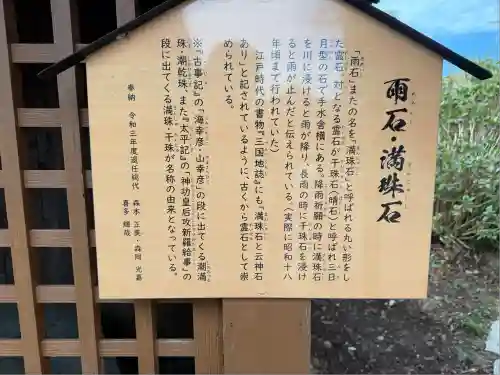 雨石・満珠石
「雨石」またの名を「満珠石」と呼ばれる丸い形をし
た霊石　対となる霊石が干珠石(晴石)と呼ばれ三日
月型の石で手水舎横にある。降雨祈願の時に満珠石
を川に浸けると雨が降り、長雨の時に干珠石を浸け
ると雨が止んだと伝えられている。(実際に昭和十八
年頃まで行われていた)
江戸時代の書物『三国地誌』にも「満珠石と云神石
あり」と記されているように、古くから霊石として崇
められている。
※『古事記』の「海幸彦・山幸彦」の段に出てくる潮満
珠・潮乾珠、また『太平記』の「神功皇后攻新羅給事」の
段に出てくる満珠・干珠が名称の由来となっている。
奉納　令和三年度退任総代　森本 正美・森岡 光嘉
喜多 輝哉